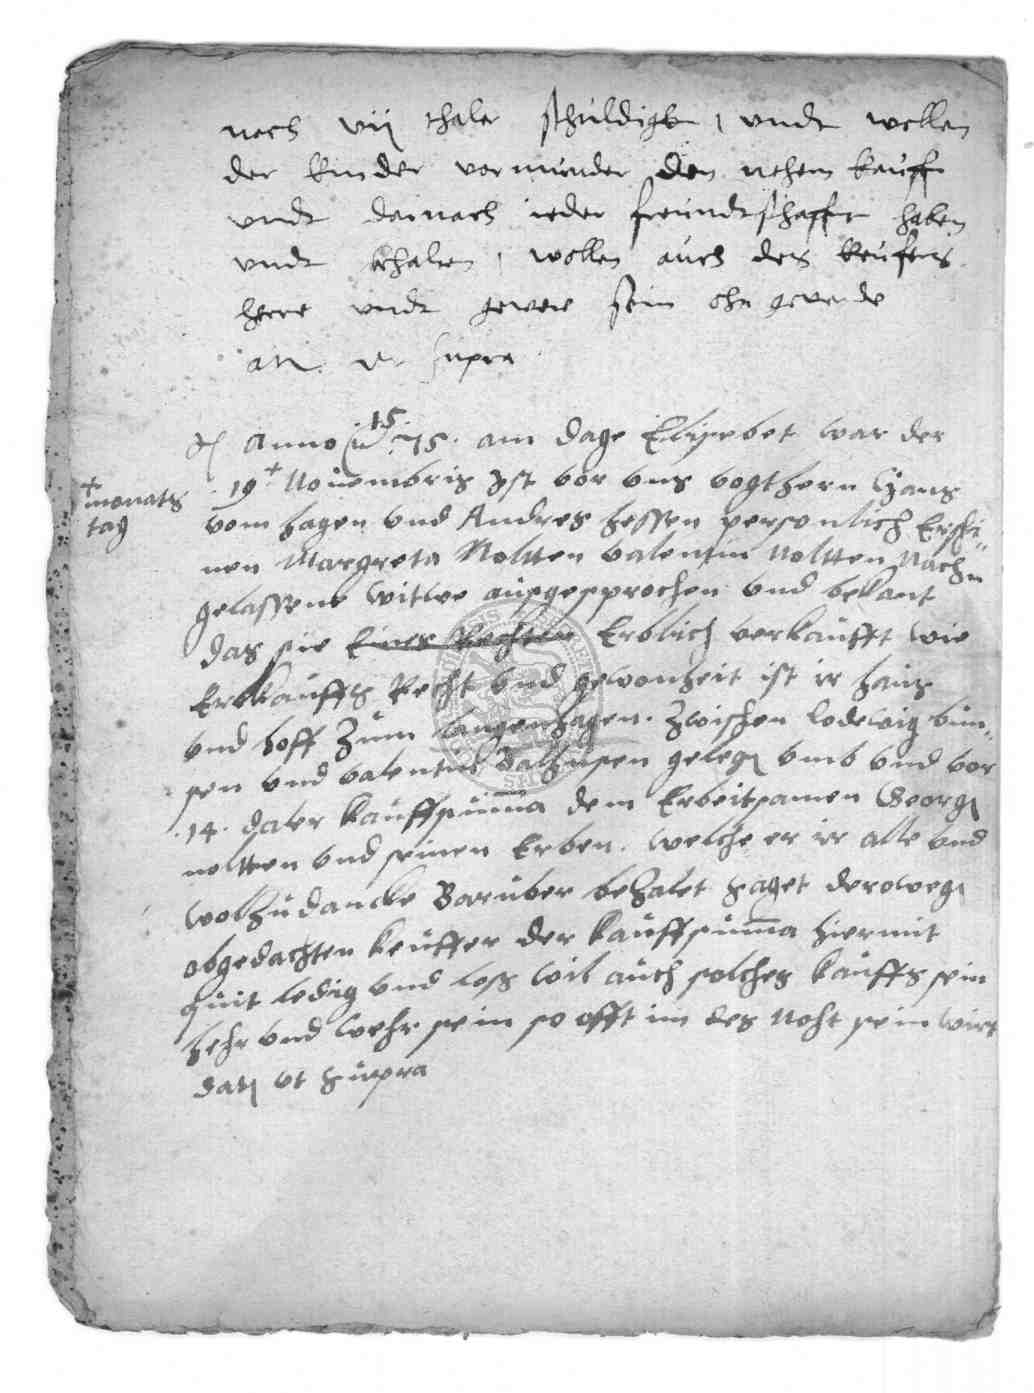 noch vij thaler schuldigk, undt wollen
der kinder vormunder den nehem kauff
undt darnach ieder freundtschafft haben
undt behalten, wollen auch des keufers
herre undt gewere sein ohn geverde
ut supra
Anno 1575. am dage Elisebet war der
19 + Nouembris Ist vor uns vogthern Hans
+ monats
tag
vom hagen und Andres hessen personlich Erschi-
nen Margreta Noltten valentin Noltten Nach
gelassene witwe ausgesprochen und bekant
das sie Eines Rechten Erblich verkaufft wie
Erbkauffs Recht und gewonheit ist ir haus
und hoff Zum langenhagen. Zwischen lodewig bun-
sen und valentin gelegen umb und vor
14. daler kauffsumma dem Erbeitsamen Georg
noltten und seinen Erben. welche er ir alle und
wolzudancke Baruber bezalet saget derowegen
obgedachten keuffer der kauffsumma hiermit
quit ledig und loss wil auch solches kauffs sein
hehr und wehr sein so offt im des Noht sein wirt
dat ut supra